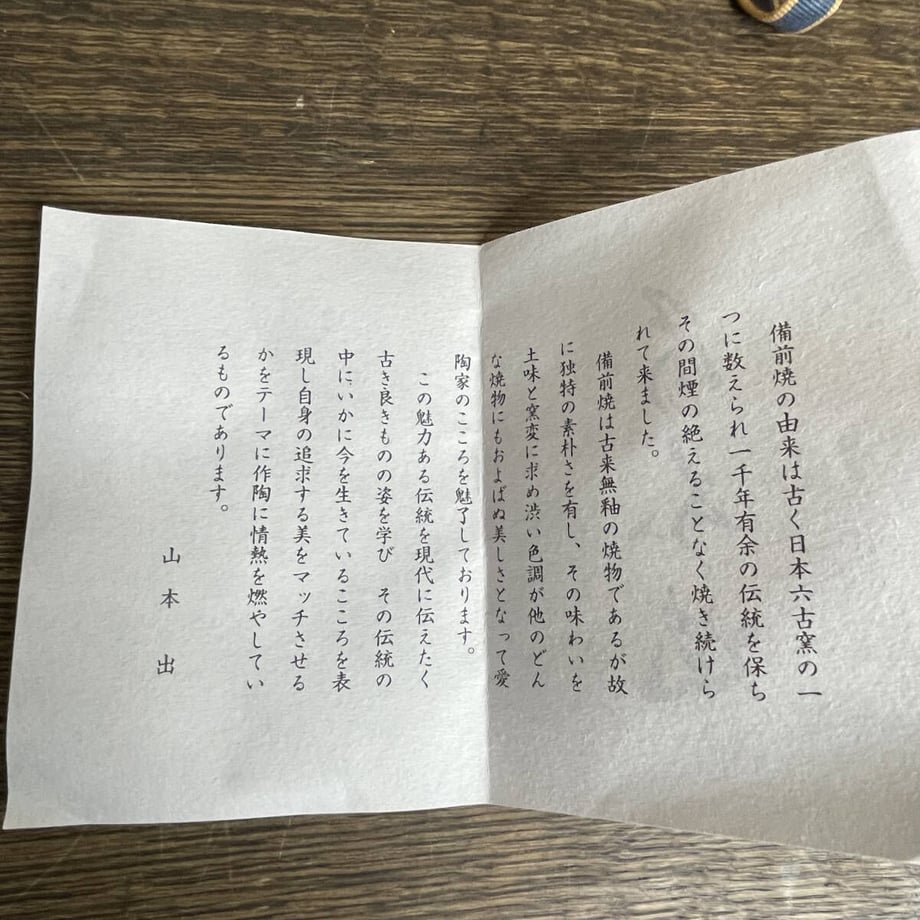 備前焼の由来は古く日本六古窯の一
つに数えられ一千年有余の伝統を保ち
その間煙の絶えることなく焼き続けら
れて来ました。
備前焼は古来無釉の焼物であるが故
に独特の素朴さを有し、その味わいを
土味と窯変に求め渋い色調が他のどん
な焼物にもおよばぬ美しさとなって愛
陶家のこころを魅了しております。
この魅力ある伝統を現代に伝えたく
古き良きものの姿を学び その伝統の
中に、いかに今を生きているこころを表
現し自身の追求する美をマッチさせる
かをテーマに作陶に情熱を燃やしてい
るものであります。
山本 出